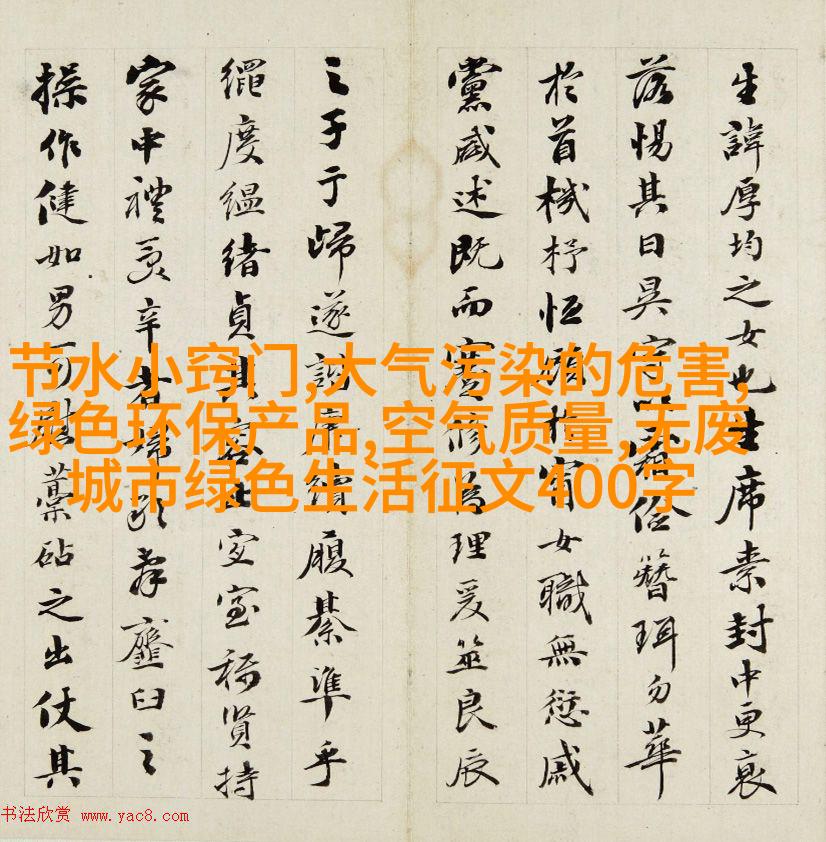 生諱厚均之女也生席素封中更衰
落惕其日昃守俗簪珥勿華
於首機杼恒女職無愆戚
黨咸述既而理爰筮良辰
之子于歸遂續履綦準乎
繩度縕緒貞室稱賢持
家中禮辛臼之
操作健如男藁砧之出仗其
节水小窍门,大气污染的危害,
绿色环保产品,空气质量,无废
城市绿色生活征文400字
书法欣赏 www.yac8.com